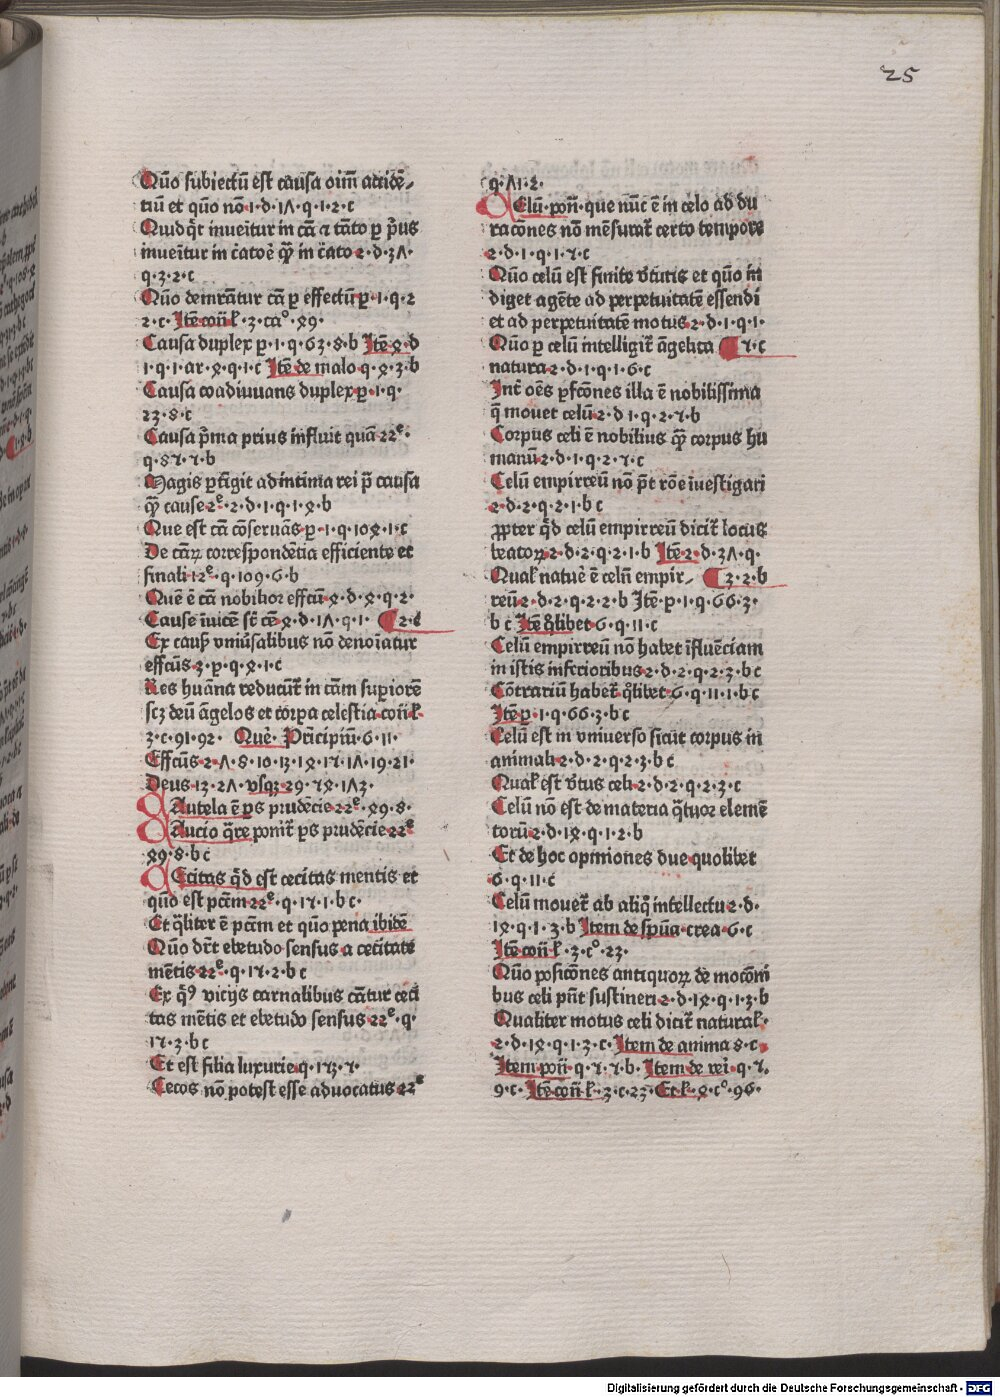 25
Quō subiectū est causa oīm accidē-
tiū et quō nō·1·d·1Λ·q·1·2·c
Quidqr̄t inueītur in cā ⁊ tāto ꝑ p̄us
inueītur in cātoē qꝫ̄ in cāto·2·d·3Λ·
q·3·2·c
Quō demrāntur cā ꝑ effectū ꝑ·1·q·2
2·c·Itē con̄ l̄·3·ca°·89·
Causa duplex ꝑ·1·q·63·8·b Itē·8·d
1·q·1·ar·8·q·1·c Itē de malo q·8·3·b
Causa coadiuuans duplex ꝑ·1·q·
23·8·c
Causa p̄ma prius influit quā 22ᵉ·
q·87·7·b
Magis ꝑtīgit ad intima rei p̄ causa
qꝫ̄ cause 2ᵉ·2·d·1·q·1·8·b
Que est cā cōseruās ꝑ·1·q·108·1·c
De cāꝝ correspondētia efficiente et
finali·12ᵉ·q·109·6·b
Quē ē cā nobilior effcū·8·d·8·q·2·
Cause īuicē st̄ cē·8·d·1Λ·q·1· ¶2·c
Ex caus̄ vniūsalibus nō denoīatur
effcūs·3·ꝑ·q·8·1·c
Res huāna reducūt̄ in cām suꝑiorē
scꝫ deū āgelos et corpa celestia con̄ l̄·
3·c·91·92· Quē· Prīcipiū·6·11·
Effcūs·2·Λ·8·10·13·18·17·1Λ·19·21·
Deus·13·2Λ·vsqꝫ·29·78·1Λ3·
Cautela ē ꝑs prudēcie 22ᵉ·89·8·
Caucio q̄re ponit̄ ꝑs prudēcie 22ᵉ
89·8·b c
Cecitas q̄d est cecitas mentis et
quō est pctm̄ 22ᵉ·q·17·1·b c·
Et q̄liter ē pctm̄ et quō pena ibidē
Quō dr̄t ebetudo sensus a cecitate
mētis 22ᵉ·q·17·2·b c
Ex q̄ꝰ vicijs carnalibus cāntur ceci
tas mētis et ebetudo sensus 22ᵉ·q·
17·3·b c
Et est filia luxurie q·173·7·
Cecos nō potest esse aduocatus 22ᵉ
q·Λ1·2·
Celū·pon̄·que nūc ē in celo ad du
racōnes nō mēsurat̄ certo tempore
2·d·1·q·1·7·c
Quō celū est finite v̄tutis et quō in
diget agēte ad perpetuitatē essendi
et ad perpetuitatē motus 2·d·1·q·1·
Quō ꝑ celū intelligit̄ āgelica ¶7·c
natura 2·d·1·q·1·6·c
Int̄ oēs ꝑfcōnes illa ē nobilissima
q̄ mouet celū 2·d 1·q·2·7·b
Corpus celi ē nobilius qꝫ̄ corpus hu
manū 2·d·1·q·2·7·c
Celū empirreū nō p̄t rōe īuestigari
2·d·2·q·2·1·b c
ꝓpter q̄d celū empirreū dicit̄ locus
beatoꝝ 2·d·2·q·2·1·b Itē 2·d·3Λ·q·
Qual̄ natuē ē celū empir- ¶3·2·b
reū 2·d·2·q·2·2·b Itē·ꝑ·1·q·66·3·
b c Itē q̄libet·6·q·11·c
Celū empirreū nō habet īfluēciam
in istis inferioribus 2·d·2·q·2·3·b c
Cōtrariū habet̄ q̄libet·6·q·11·1·b c
Itē ꝑ·1·q·66·3·b c
Celū est in vniuerso sicut corpus in
animali 2·d·2·q·2·3·b c
Qual̄ est v̄tus celi·2·d·2·q·2·3·c
Celū nō est de materia q̄tuor elemē
torū 2·d·18·q·1·2·b
Et de hoc opiniones due quolibet
6·q·11·c
Celū mouet̄ ab aliq̄ intellectu 2·d·
18·q·1·3·b Item de spūa crea·6·c
Itē con̄ l̄·3·c°·23·
Quō posicōnes antiquoꝝ de mocōni
bus celi pn̄t sustineri 2·d·18·q·1·3·b
Qualiter motus celi dicit̄ natural̄·
2·d·18·q·1·3·c·Item de anima 8·c·
Item pon̄·q·7·7·b·Item de vei·q·7·
9·c·Itē con̄ l̄·3·c·23·Et l̄·8·c°·96·
Digitalisierung gefördert durch die Deutsche Forschungsgemeinschaft - DFG